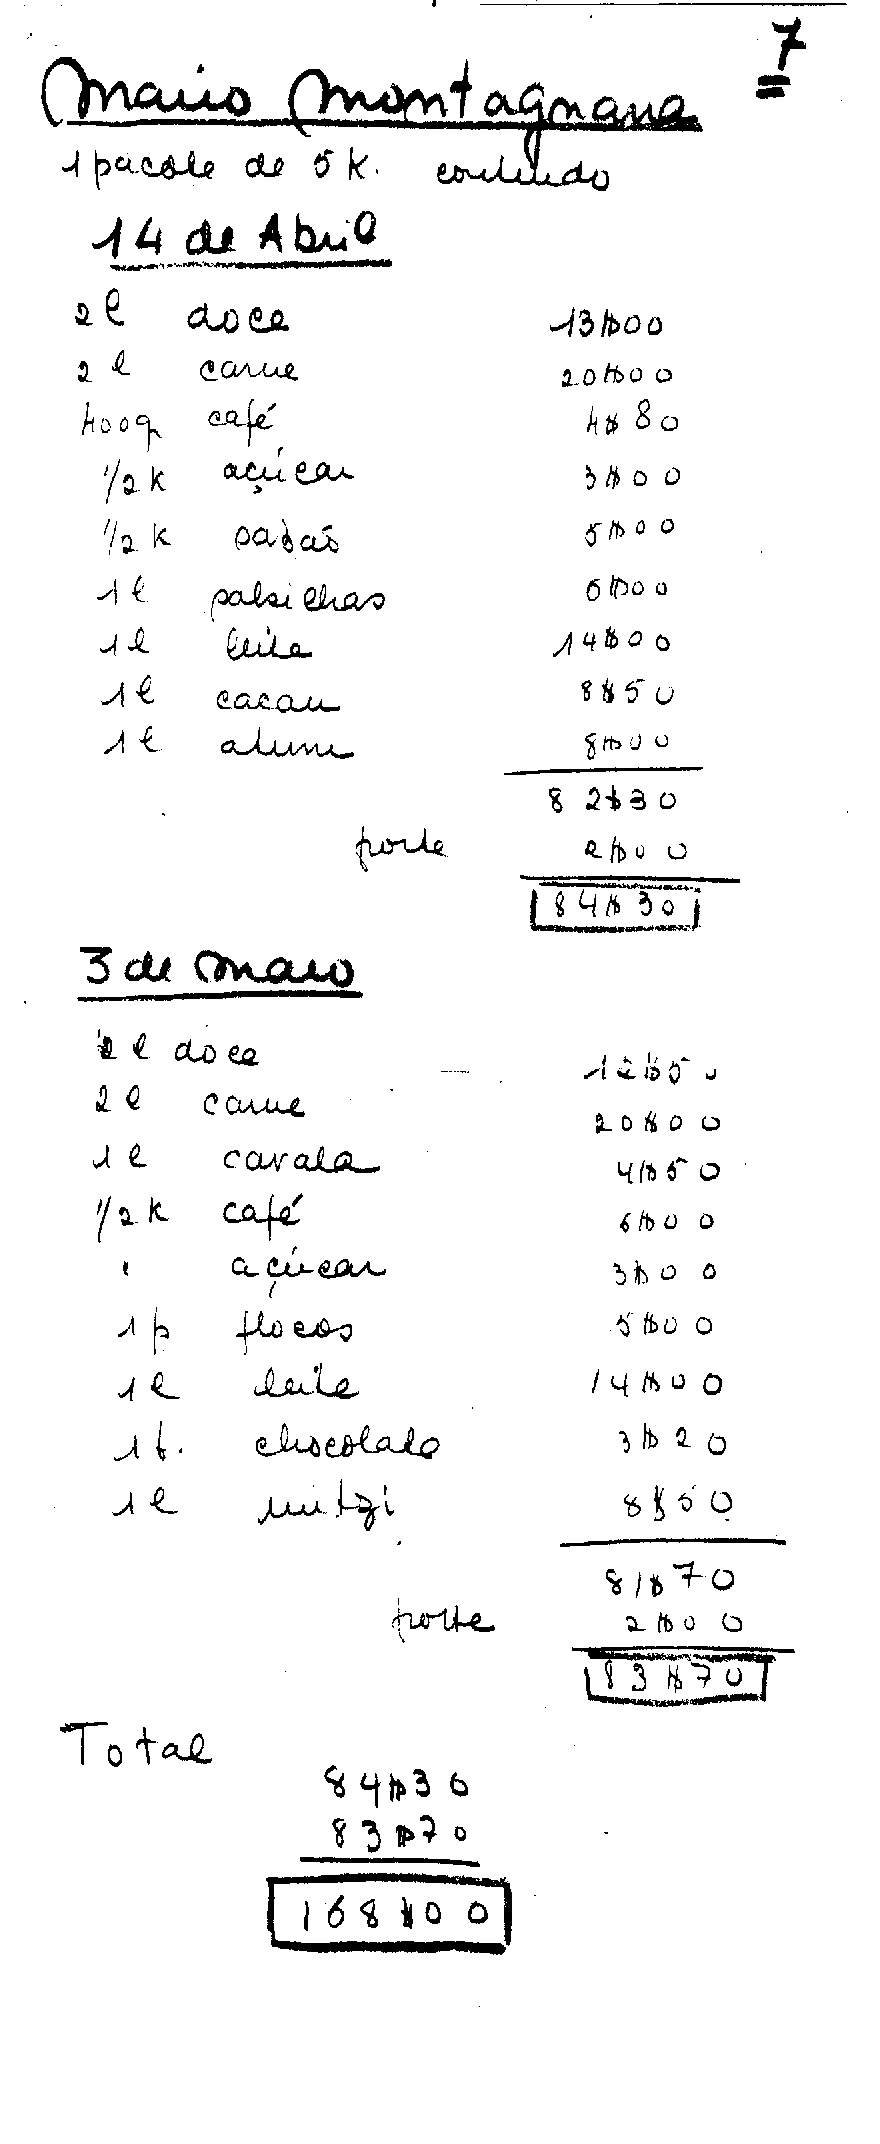 7
Mario Montagnana
1 pacote de 5 k. contendo
14 de Abril
2 l doce 13$00
2 l carne 20$00
400g café 4$80
1/2 k açúcar 3$00
1/2 k sabão 5$00
1 l salsichas 6$00
1 l leite 14$00
1 l cacau 8$50
1 l atum 8$00
82$30
porte 2$00
84$30
3 de Maio
2 l doce 12$50
2 l carne 20$00
1 l cavala 4$50
1/2 k café 6$00
" açúcar 3$00
1 p flocos 5$00
1 l leite 14$00
1 t. chocolate 3$20
1 l 8$50
81$70
porte 2$00
83$70
Total
84$30
83$70
168$00